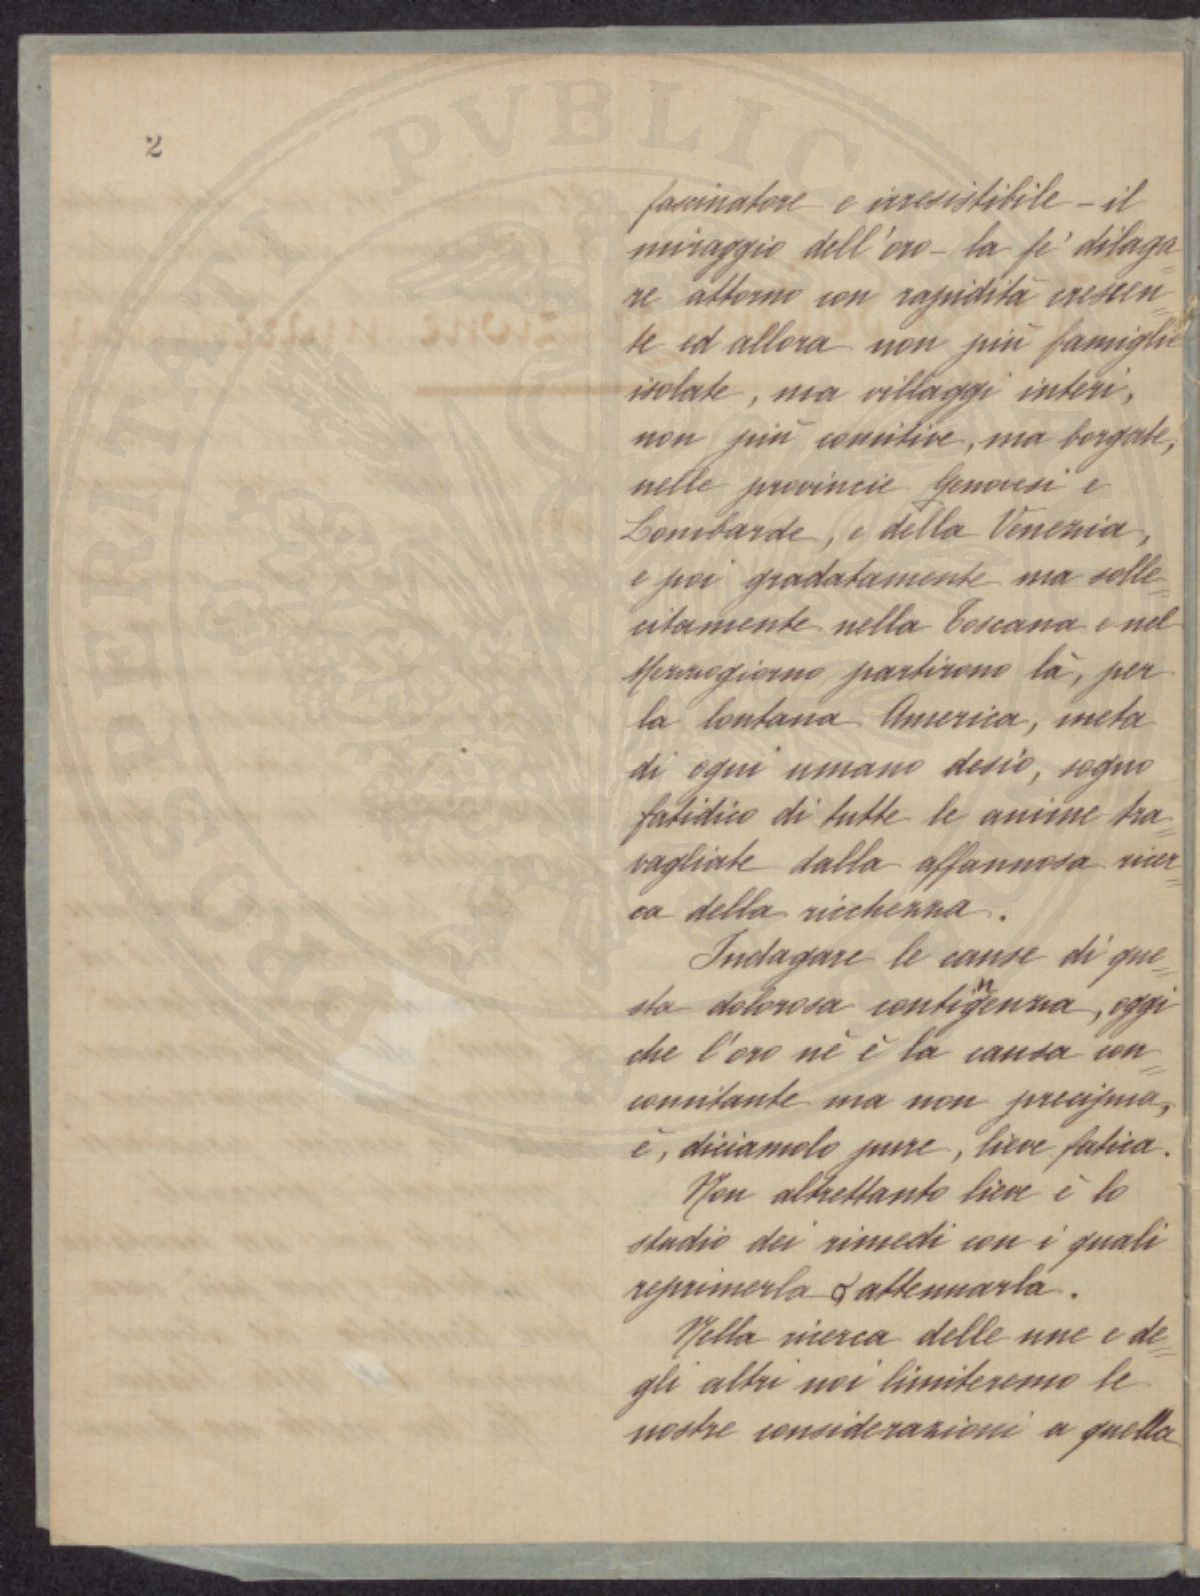 2
fascinatore e irresistibile – il
miraggio dell'oro – la fe' dilaga
re attorno con rapidità crescen=
te ed allora non più famiglie
isolate, ma villaggi interi,
non più comitive, ma borgate,
nelle provincie Genovesi e
Lombarde, e della Venezia,
e poi gradatamente ma solle=
citamente nella Toscana e nel
Mezzogiorno partirono là, per
la lontana America, meta
di ogni umano desìo, sogno
fatidico di tutte le anime tra=
vagliate dalla affannosa ricer=
ca della ricchezza.
Indagare le cause di que=
sta dolorosa contingenza, oggi
che l'oro nè è la causa con=
comitante ma non precipua,
è, diciamolo pure, lieve fatica.
Non altrettanto lieve è lo
studio dei rimedi con i quali
reprimerla o attenuarla.
Nella ricerca delle une e de=
gli altri noi limiteremo le
nostre considerazioni a quella
PROSPERITATI PVBLICAE